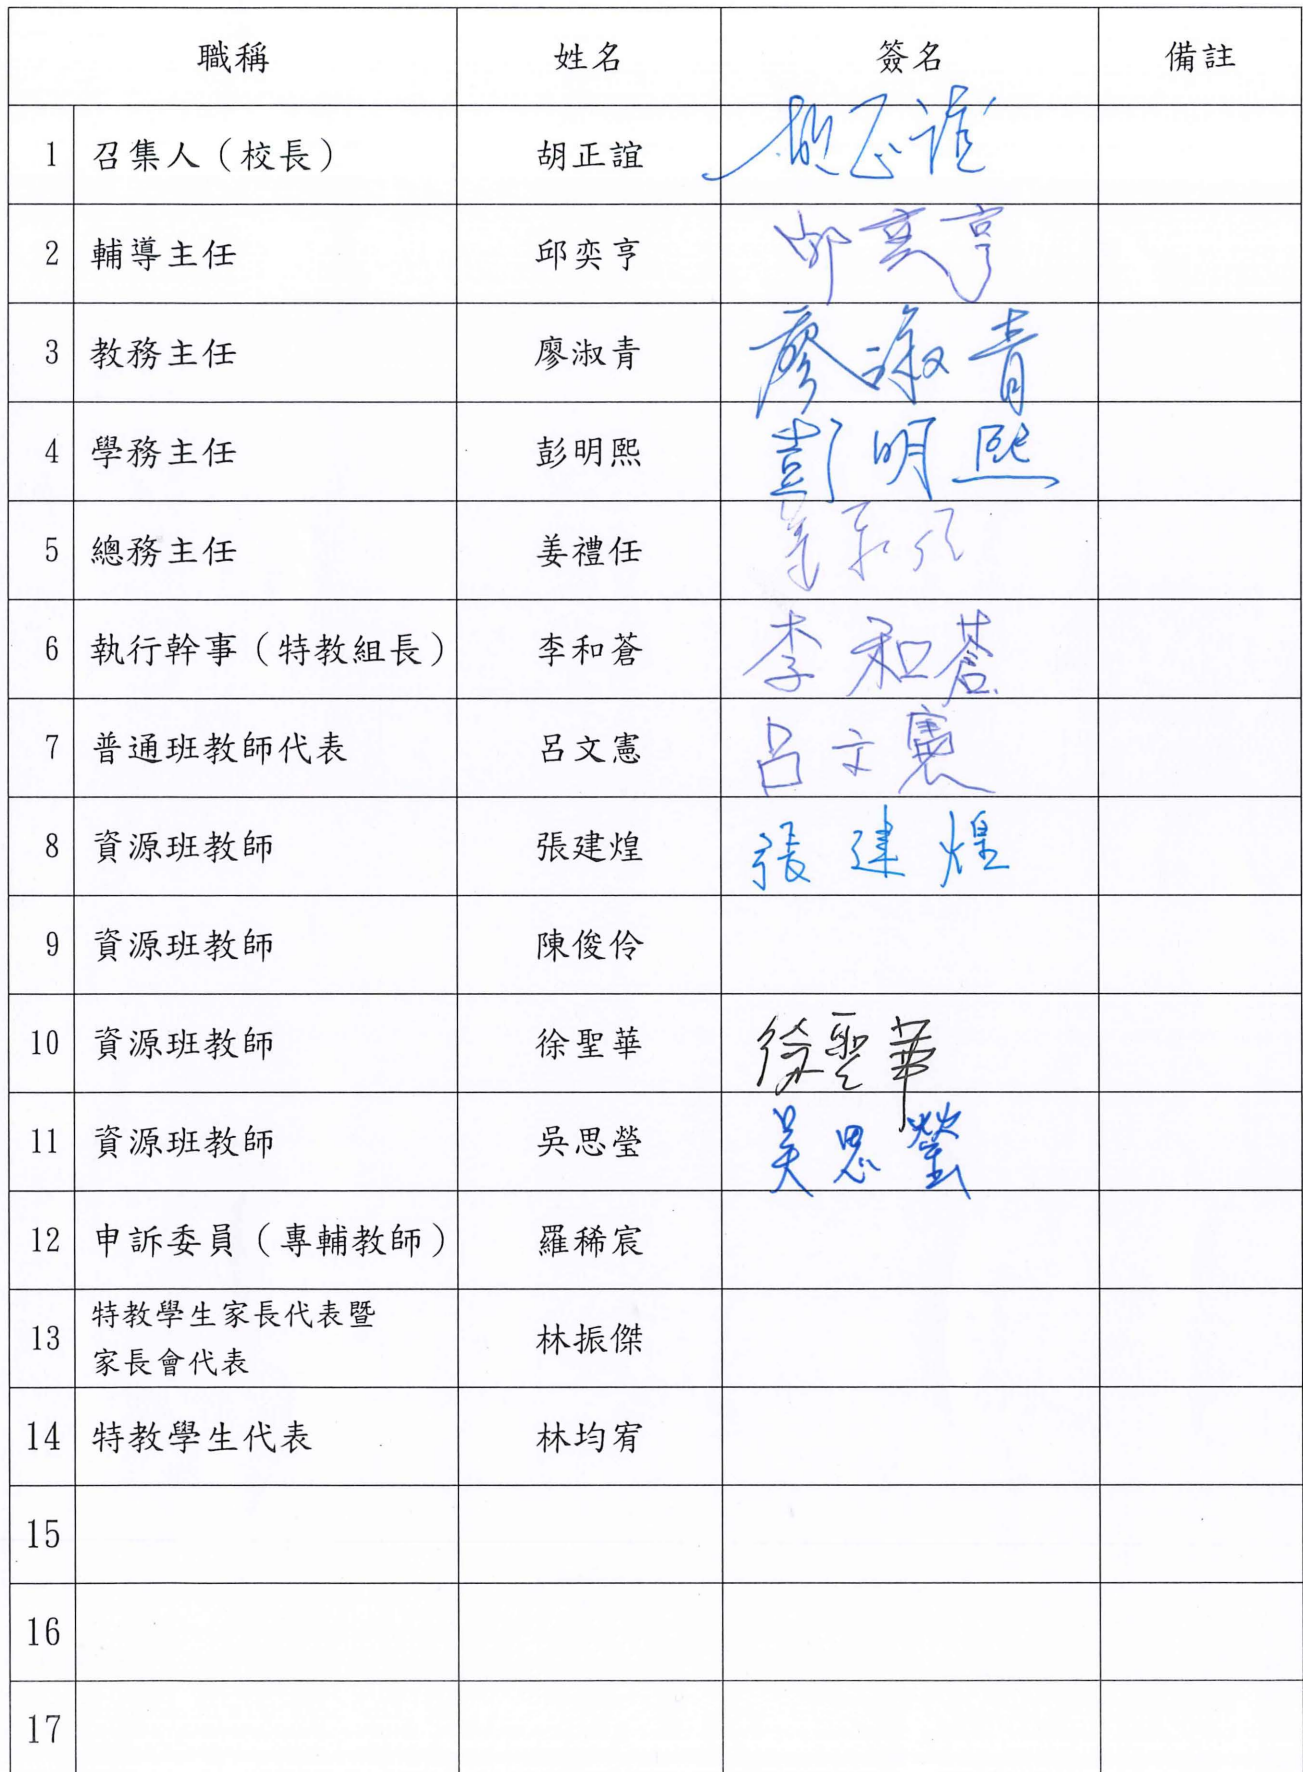 職稱 姓名 簽名 備註
1 召集人（校長） 胡正誼 胡正誼
2 輔導主任 邱奕亨 邱奕亨
3 教務主任 廖淑青 廖淑青
4 學務主任 彭明熙 彭明熙
5 總務主任 姜禮任
6 執行幹事（特教組長） 李和蒼 李和蒼
7 普通班教師代表 呂文憲 呂文憲
8 資源班教師 張建煌 張建煌
9 資源班教師 陳俊伶
10 資源班教師 徐聖華 徐聖華
11 資源班教師 吳思瑩 吳思瑩
12 申訴委員（專輔教師） 羅稀宸
13 特教學生家長代表暨
家長會代表 林振傑
14 特教學生代表 林均宥
15
16
17